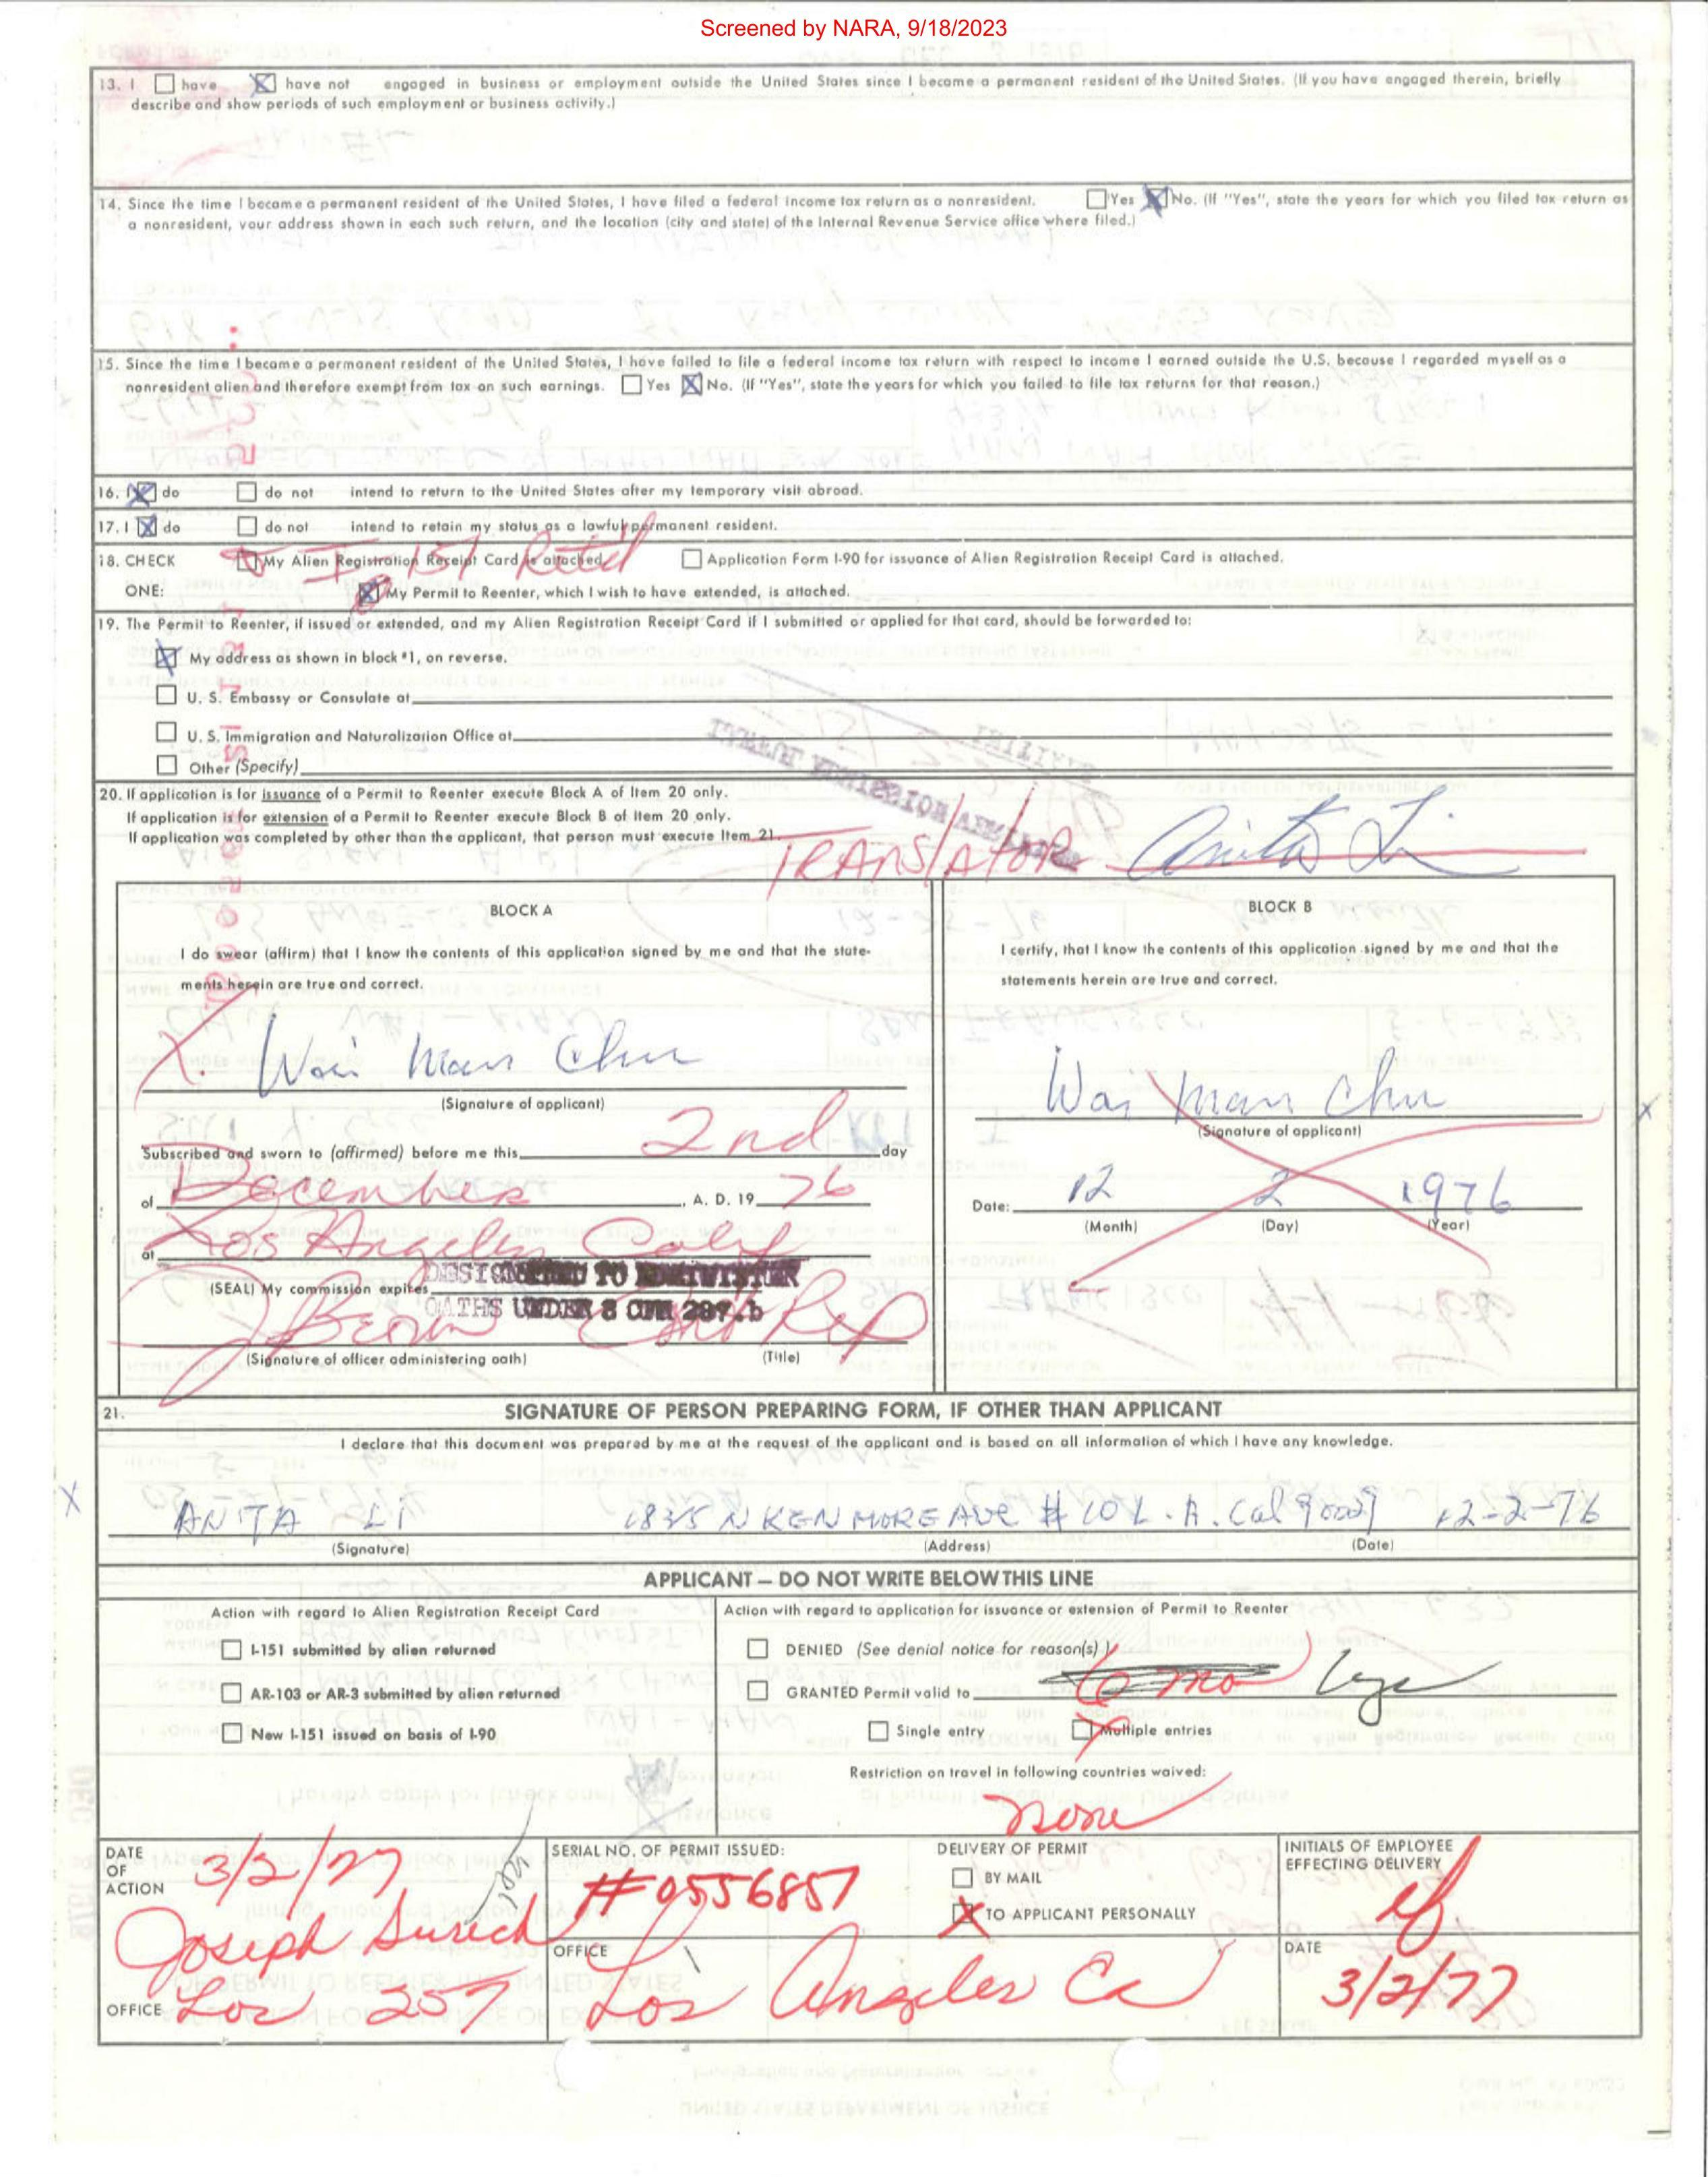 Screened by NARA, 9/18/2023
13. I have have not engaged in business or employment outside the United States since I become a permanent resident of the United States. (If you have engaged therein, briefly
describe and show periods of such employment or business activity.)
14. Since the time I become a permanent resident of the United States, I have filed a federal income tax return as a nonresident. Yes No. (If "Yes", state the years for which you filed tax return as
a nonresident, your address shown in each such return, and the location (city and state) of the Internal Revenue Service office where filed.)
15. Since the time I become a permanent resident of the United States, I have failed to file a federal income tax return with respect to income I earned outside the U.S. because I regarded myself as a
nonresident alien and therefore exempt from tax on such earnings. Yes No. (If "Yes", state the years for which you failed to file tax returns for that reason.)
16. I do do not intend to return to the United States after my temporary visit abroad.
17. I do do not intend to retain my status as a lawful permanent resident.
18. CHECK My Alien Registration Receipt Card is attached. Application Form I-90 for issuance of Alien Registration Receipt Card is attached.
I-151 Retd
ONE: My Permit to Reenter, which I wish to have extended, is attached.
19. The Permit to Reenter, if issued or extended, and my Alien Registration Receipt Card if I submitted or applied for that card, should be forwarded to:
My address as shown in block #1, on reverse.
U. S. Embassy or Consulate at
U. S. Immigration and Naturalization Office at
Other (Specify)
20. If application is for issuance of a Permit to Reenter execute Block A of Item 20 only.
If application is for extension of a Permit to Reenter execute Block B of Item 20 only.
If application was completed by other than the applicant, that person must execute Item 21.
TRANSlATOR Anita Li
BLOCK A
I do swear (affirm) that I know the contents of this application signed by me and that the state-
ments herein are true and correct.
X. Wai Man Chu
(Signature of applicant)
Subscribed and sworn to (affirmed) before me this 2nd day
of December, A. D. 19 76
at Los Angeles Calif
(SEAL) My commission expires
DESIGNATED TO ADMINISTER
OATHS UNDER 8 CFR 287.b
J Brown Cont Rep
(Signature of officer administering oath) (Title)
BLOCK B
I certify, that I know the contents of this application signed by me and that the
statements herein are true and correct.
Wai Man Chu
(Signature of applicant)
Date: 12 2 1976
(Month) (Day) (Year)
X
21. SIGNATURE OF PERSON PREPARING FORM, IF OTHER THAN APPLICANT
I declare that this document was prepared by me at the request of the applicant and is based on all information of which I have any knowledge.
X
ANITA Li 1835 N KENMORE AVE # 10 L.A. Cal 90027 12-2-76
(Signature) (Address) (Date)
APPLICANT — DO NOT WRITE BELOW THIS LINE
Action with regard to Alien Registration Receipt Card
I-151 submitted by alien returned
AR-103 or AR-3 submitted by alien returned
New I-151 issued on basis of I-90
Action with regard to application for issuance or extension of Permit to Reenter
DENIED (See denial notice for reason(s))
GRANTED Permit valid to 6 mo
Single entry Multiple entries
Restriction on travel in following countries waived:
none
DATE OF ACTION 3/2/77
OFFICE Los 257
SERIAL NO. OF PERMIT ISSUED:
#0556857
OFFICE Los Angeles Ca
DELIVERY OF PERMIT
BY MAIL
TO APPLICANT PERSONALLY
INITIALS OF EMPLOYEE
EFFECTING DELIVERY
DATE
3/2/77